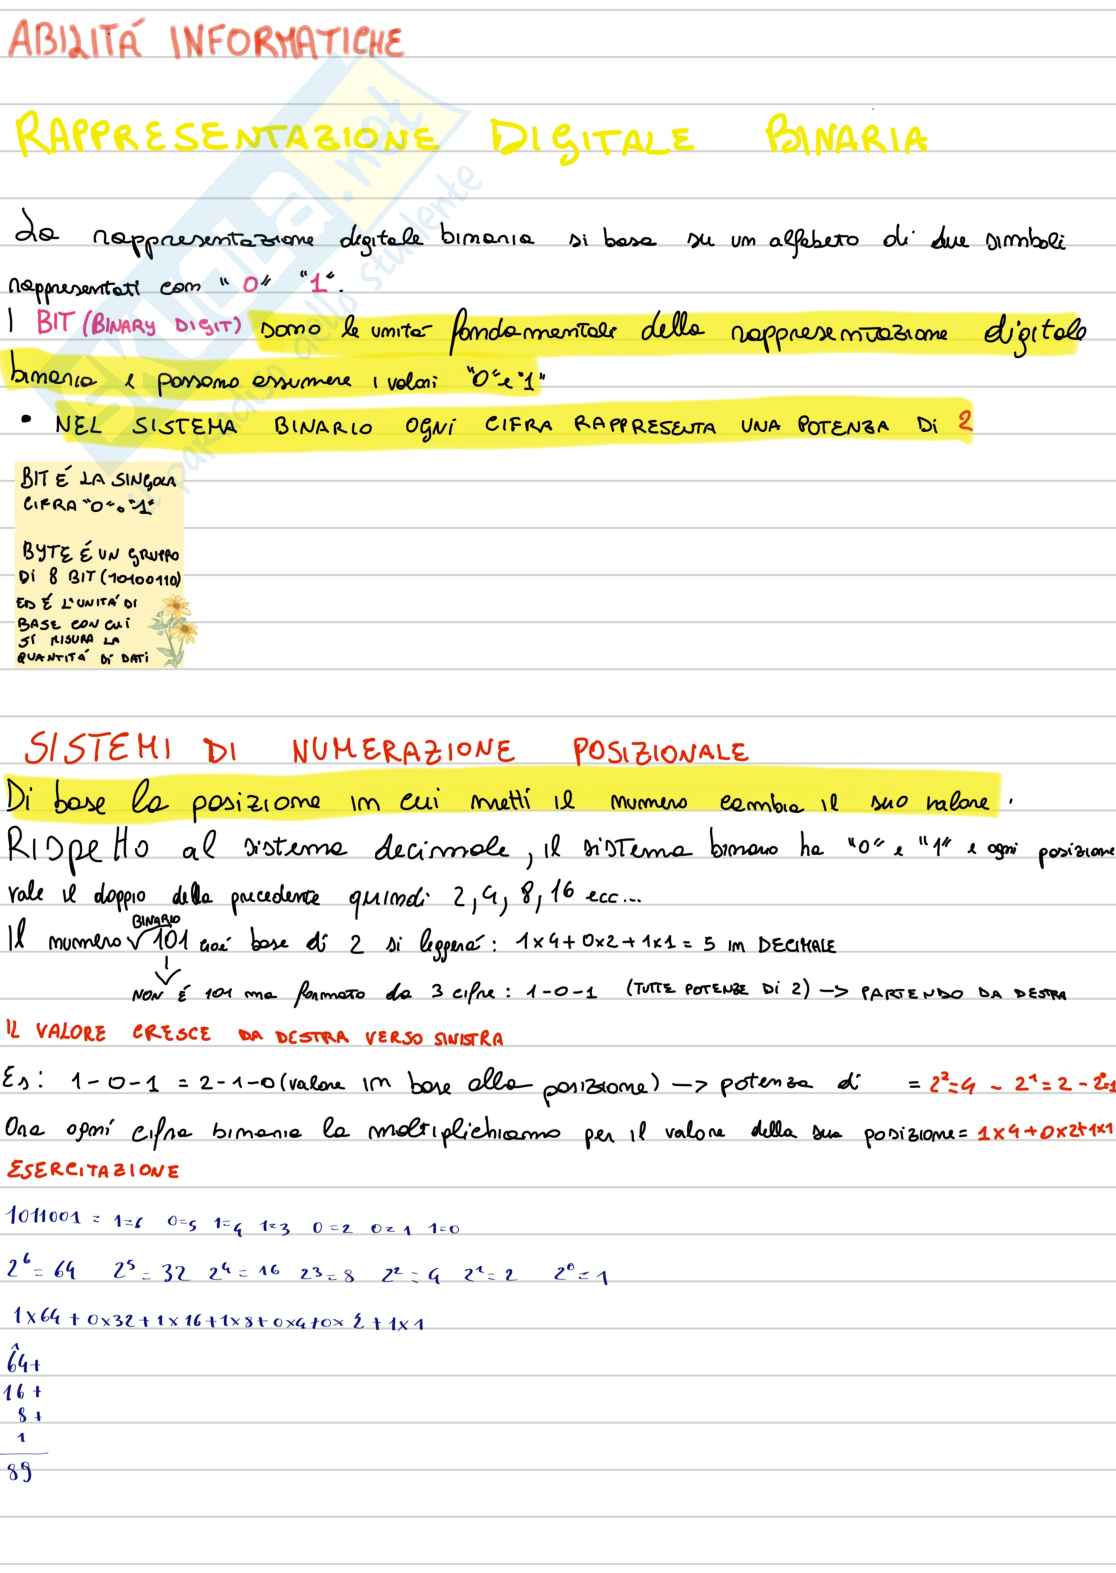 ABILITÁ INFORMATICHE
RAPPRESENTAZIONE DIGITALE BINARIA
La rappresentazione digitale binaria si basa su un alfabeto di due simboli
rappresentati con "0" "1".
I BIT (BINARY DIGIT) sono le unità fondamentale della rappresentazione digitale
binaria e possono assumere i valori "0" e "1"
• NEL SISTEMA BINARIO OGNI CIFRA RAPPRESENTA UNA POTENZA DI 2
BIT É LA SINGOLA
CIFRA "0" o "1"
BYTE É UN GRUPPO
DI 8 BIT (10100110)
ED É L'UNITÁ DI
BASE CON CUI
SI MISURA LA
QUANTITÁ DI DATI
SISTEMI DI NUMERAZIONE POSIZIONALE
Di base la posizione in cui metti il numero cambia il suo valore.
Rispetto al sistema decimale, il sistema binario ha "0" e "1" e ogni posizione
vale il doppio della precedente quindi 2, 4, 8, 16 ecc...
BINARIO
Il numero √101 cioé base di 2 si leggerá: 1x4+0x2+1x1 = 5 in DECIMALE
NON É 101 ma formato da 3 cifre: 1-0-1 (TUTTE POTENZE DI 2) -> PARTENDO DA DESTRA
IL VALORE CRESCE DA DESTRA VERSO SINISTRA
Es: 1-0-1 = 2-1-0 (valore in base alla posizione) -> potenza di = 2²=4 - 2¹=2 - 2⁰=1
Ora ogni cifra binaria la moltiplichiamo per il valore della sua posizione = 1x4+0x2+1x1
ESERCITAZIONE
1011001 = 1=6 0=5 1=4 1=3 0=2 0=1 1=0
2⁶=64 2⁵=32 2⁴=16 2³=8 2²=4 2¹=2 2⁰=1
1x64+0x32+1x16+1x8+0x4+0x2+1x1
1
64+
16+
8+
1
89
SKUOLA.not
il paradiso dello studente